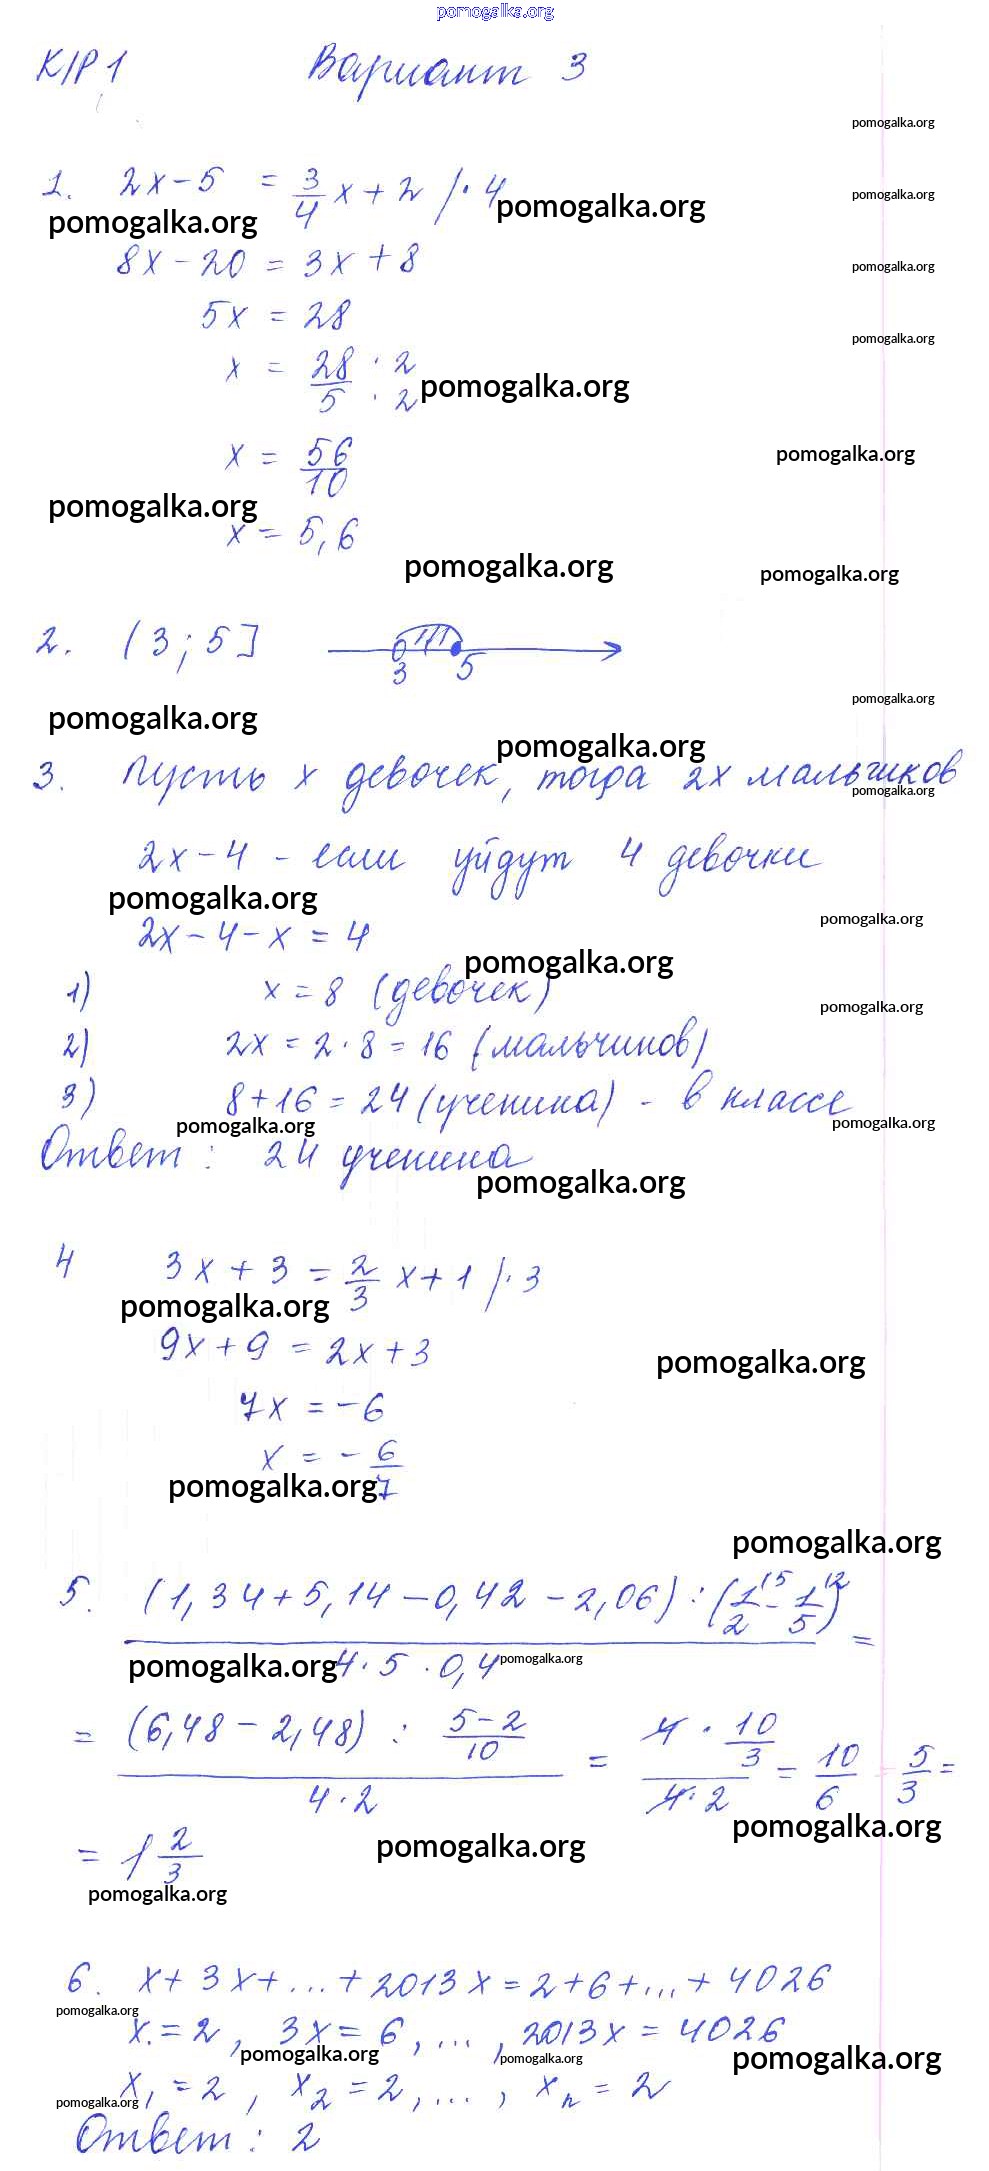 pomogalka.org
К/Р 1 Вариант 3
pomogalka.org
1. 2x - 5 = 3/4 x + 2 /· 4
pomogalka.org
pomogalka.org pomogalka.org
8x - 20 = 3x + 8
pomogalka.org
5x = 28
pomogalka.org
x = 28/5 · 2/· 2
pomogalka.org
x = 56/10
pomogalka.org
pomogalka.org
x = 5,6
pomogalka.org pomogalka.org
2. (3; 5] 3 5
pomogalka.org
pomogalka.org pomogalka.org
3. Пусть x девочек, тогда 2x мальчиков
pomogalka.org
2x - 4 - если уйдут 4 девочки
pomogalka.org pomogalka.org
2x - 4 - x = 4
pomogalka.org
1) x = 8 (девочек)
pomogalka.org
2) 2x = 2 · 8 = 16 (мальчиков)
3) 8 + 16 = 24 (ученика) - в классе
pomogalka.org pomogalka.org
Ответ: 24 ученика
pomogalka.org
4 3x + 3 = 2/3 x + 1 /· 3
pomogalka.org
9x + 9 = 2x + 3
pomogalka.org
7x = -6
x = - 6/7
pomogalka.org
pomogalka.org
5. (1,34 + 5,14 - 0,42 - 2,06) : (1/2 ^15 - 1/5 ^12) =
4 · 5 · 0,4
pomogalka.org pomogalka.org
= (6,48 - 2,48) : 5-2/10 = 4 · 10/3 = 10/6 = 5/3 =
4 · 2 4 · 2
pomogalka.org
= 1 2/3
pomogalka.org
pomogalka.org
6. x + 3x + ... + 2013x = 2 + 6 + ... + 4026
pomogalka.org
x = 2, 3x = 6, ..., 2013x = 4026
pomogalka.org pomogalka.org pomogalka.org
x₁ = 2, x₂ = 2, ..., xₙ = 2
pomogalka.org
Ответ: 2